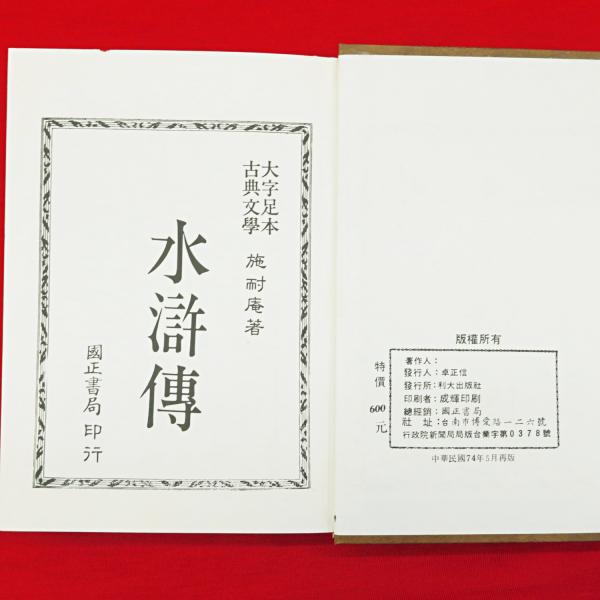 大字足本
古典文學
施耐庵著
水滸傳
國正書局印行
版權所有
特價600元
著作人：
發行人：卓正信
發行所：利大出版社
印刷者：成輝印刷
總經銷：國正書局
社　址：台南市博愛路一二六號
行政院新聞局局版台業字第0378號
中華民國74年5月再版